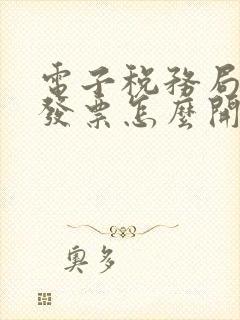 電子税務局
發票怎麼開
奧多